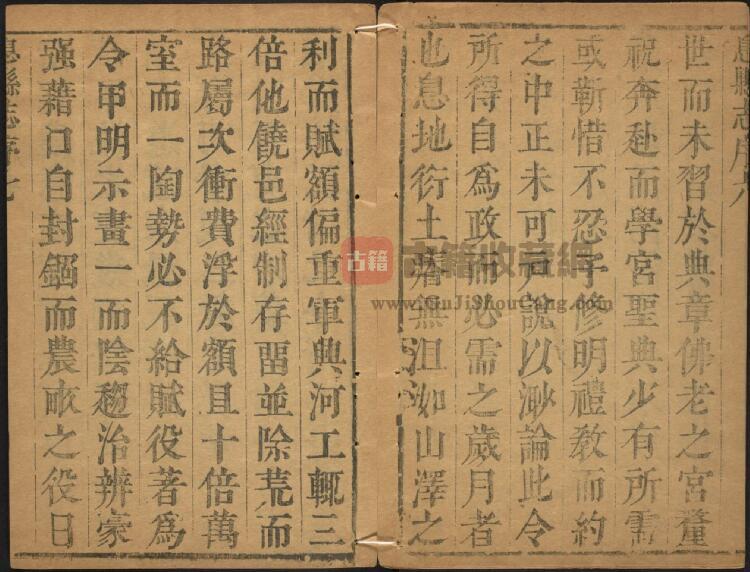 息縣志序六
世而未習於典章佛老之宮釐
祝奔赴而學宮聖典少有所需
或靳惜不忍予修明禮教而約
之中正未可戸說以渺論此令
所得自為政而必需之歲月者
也息地衍土瘠無沮洳山澤之
利而賦額偏重軍興河工輒三
倍他饒邑經制存畱並除荒而
路屬次衝費浮於額且十倍萬
室而一陶勢必不給賦役著為
令甲明示畫一而陰趨治辨豪
强藉口自封錮而農畝之役日
息縣志序七
古籍
古籍收藏網
www.GuJiShouCang.com